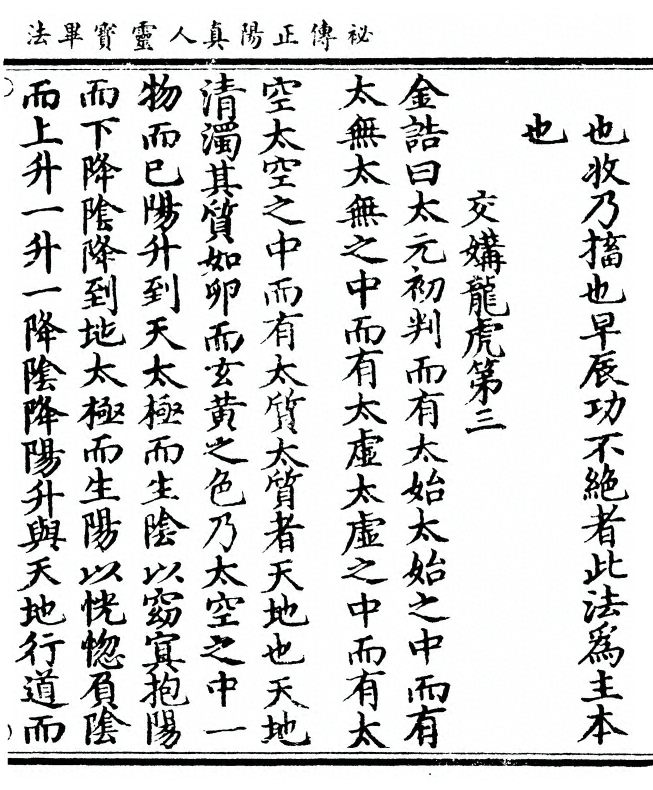 祕傳正陽真人靈寳畢法
也收乃搐也早辰功不絶者此法爲主本
也
交媾龍虎第三
金誥曰太元初判而有太始太始之中而有
太無太無之中而有太虛太虛之中而有太
空太空之中而有太質太質者天地也天地
清濁其質如卵而玄黄之色乃太空之中一
物而已陽升到天太極而生陰以窈㝠抱陽
而下降陰降到地太極而生陽以恍惚負陰
而上升一升一降陰降陽升與天地行道而